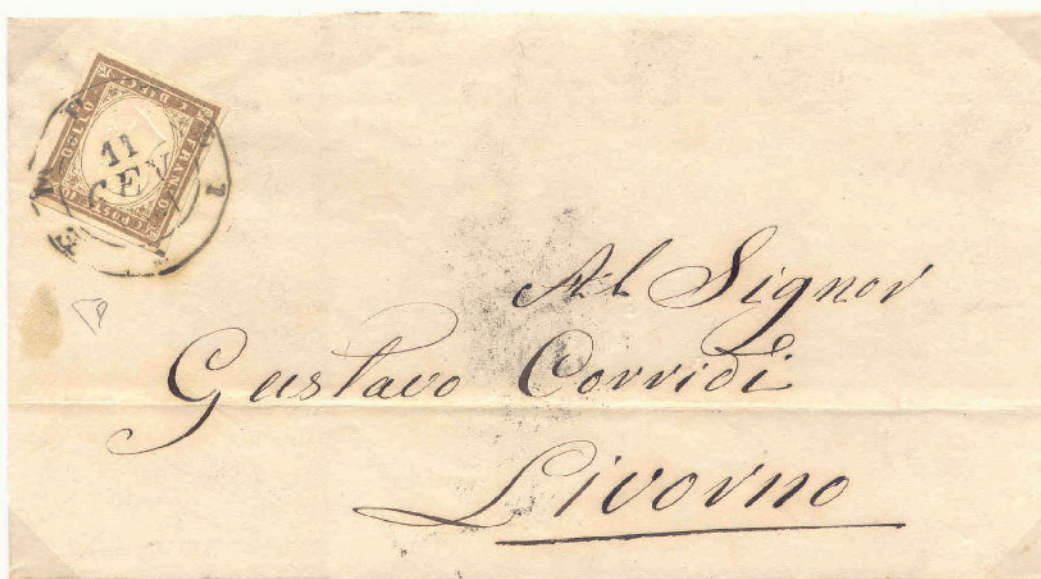 11
GEN
Al Signor
Gustavo Corridi
Livorno